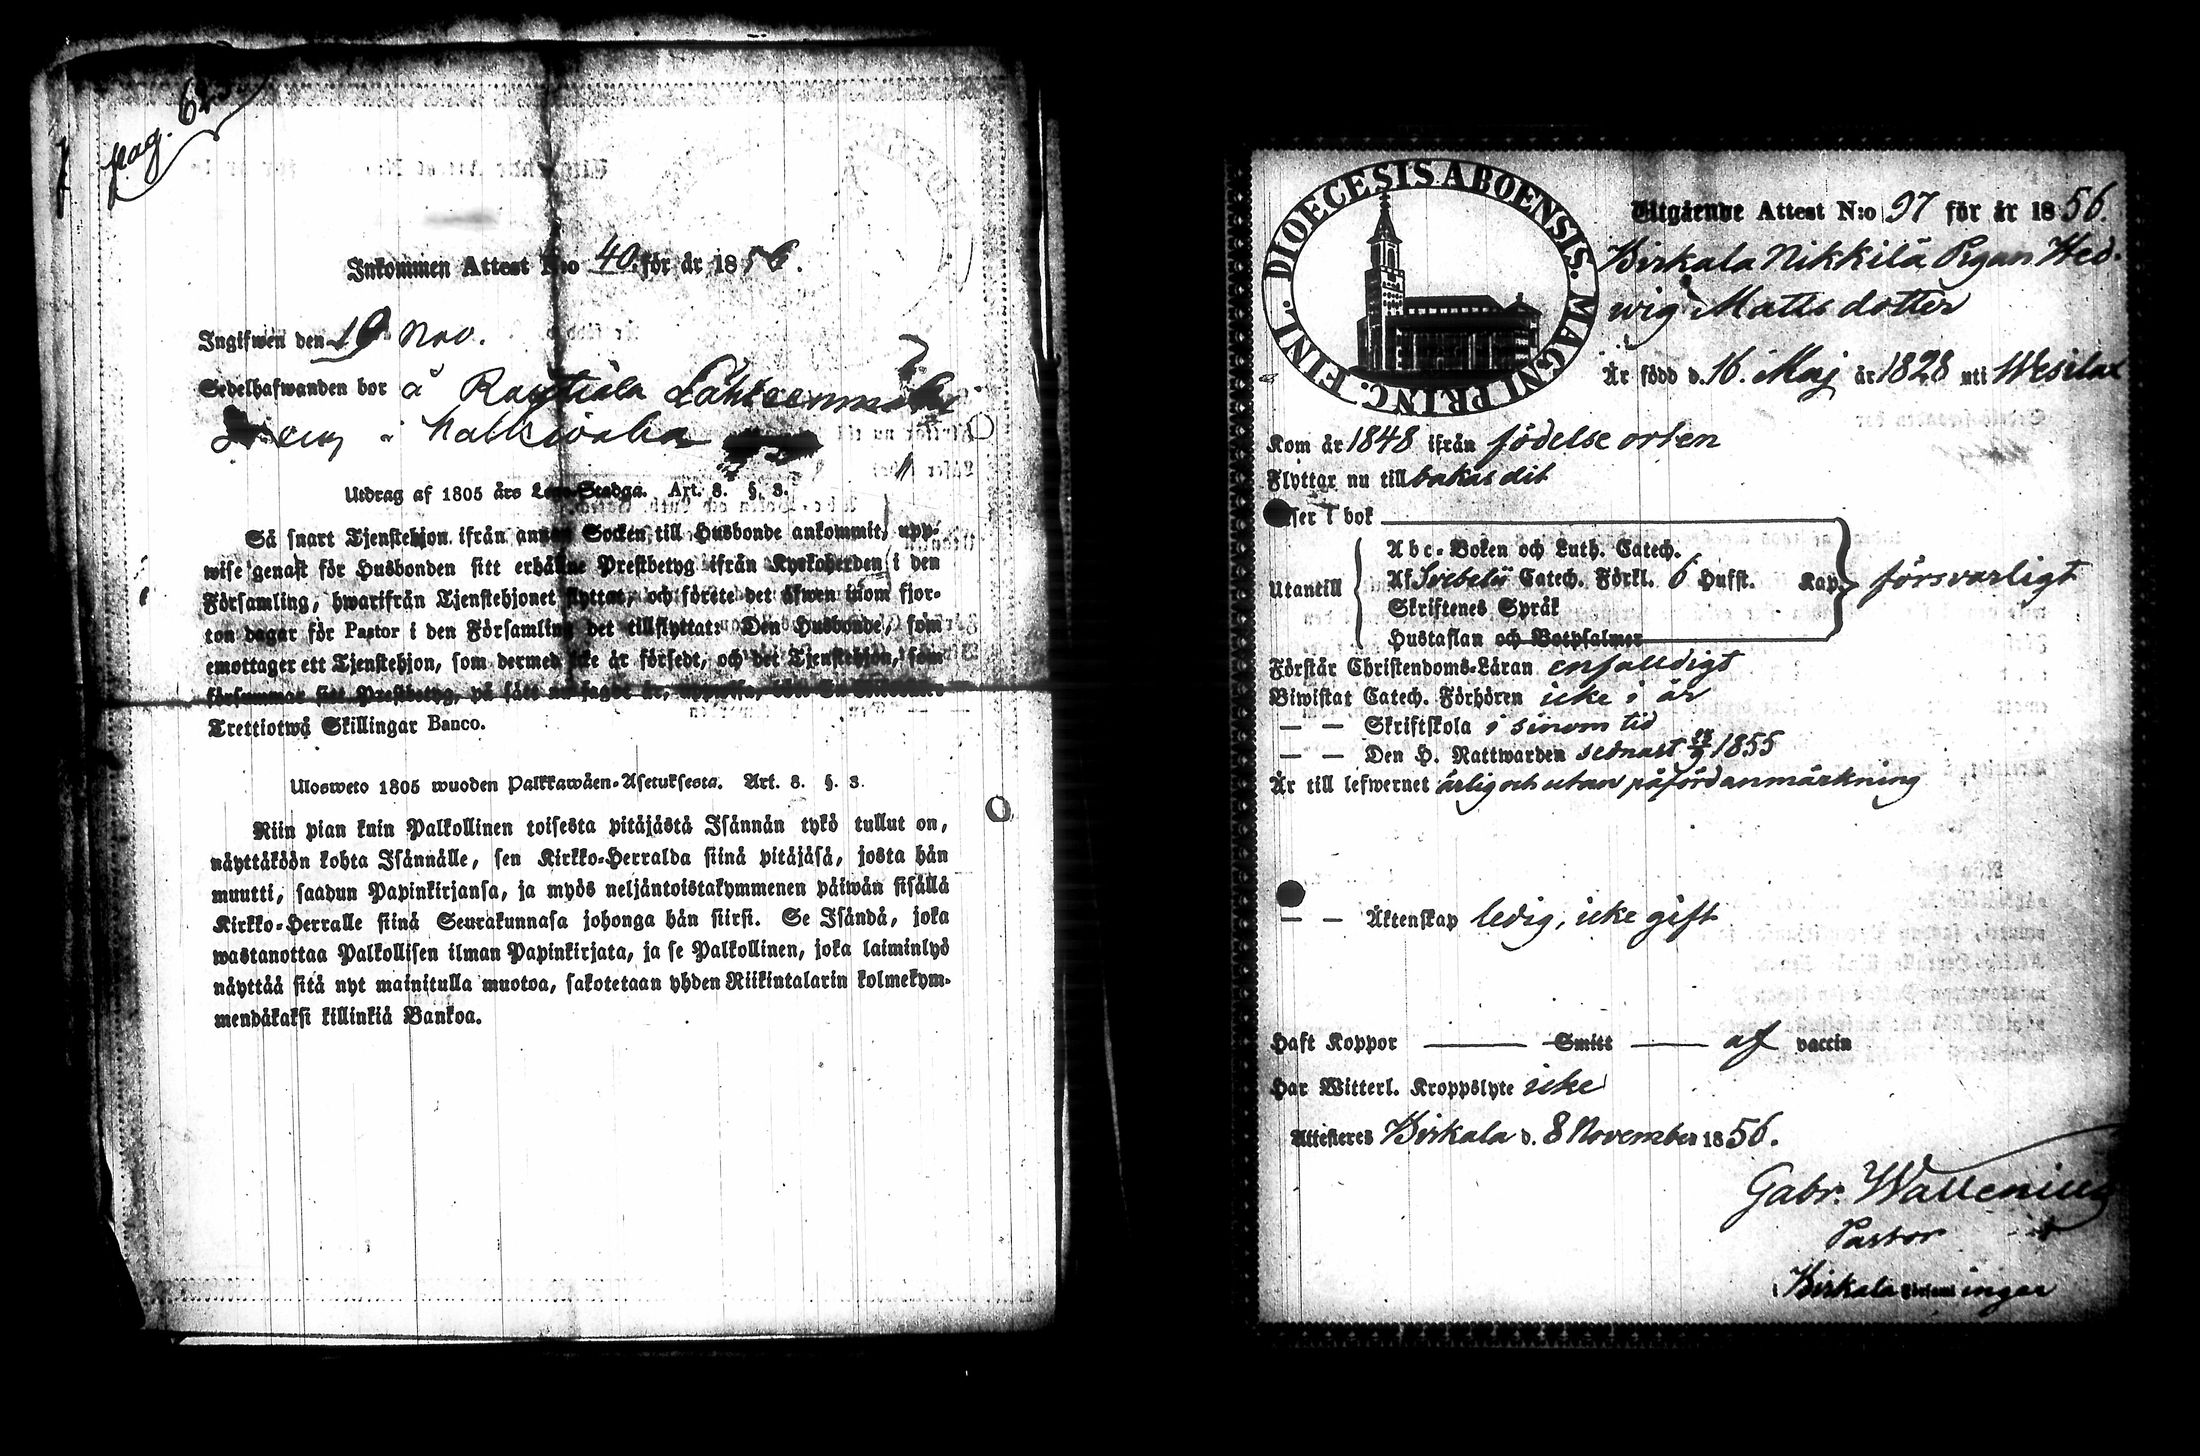 pag. 62
Inkommen Attest N:o 40 för år 1856.
Ingifwen den 19 Nov.
Sedelhafwanden bor å Rautiala
i
Utdrag af 1805 års Lego-Stadga. Art. 8. §. 3.
Så snart Tjenstehjon ifrån annan Socken till Husbonde ankommit, upp-
wise genast för Husbonden sitt erhållne Prestbetyg ifrån Kyrkoherden i den
Församling, hwarifrån Tjenstehjonet flyttat, och förete det äfwen inom fjor-
ton dagar för Pastor i den Församling det tillflyttat: Den Husbonde, som
emottager ett Tjenstehjon, som dermed icke är försedt, och det Tjenstehjon, som
försummar sitt Prestbetyg, på sätt nu sagdt är,
Trettiotwå Skillingar Banco.
Ulosweto 1805 wuoden Palkkawäen-Asetuksesta. Art. 8. §. 3.
Niin pian kuin Palkollinen toisesta pitäjästä Isännän tykö tullut on,
näyttäköön kohta Isännälle, sen Kirkko-Herralda siinä pitäjäsä, josta hän
muutti, saadun Papinkirjansa, ja myös neljäntoistakymmenen päiwän sisällä
Kirkko-Herralle siinä Seurakunnasa johonga hän siirsi. Se Isändä, joka
wastanottaa Palkollisen ilman Papinkirjata, ja se Palkollinen, joka laiminlyö
näyttää sitä nyt mainitulla muotoa, sakotetaan yhden Riikintalarin kolmekym-
mendäkaksi killinkiä Bankoa.
DIOECESIS ABOENSIS. MAGNI PRINC. FINL.
Utgående Attest N:o 97 för år 1856.
Birkala Nikkilä Pigan Hed-
wig Matts dotter
Är född d. 16. Maj år 1828 uti Wesilax
Kom år 1848 ifrån födelse orten
Flyttar nu till bakas dit
Läser i bok
Abc-Boken och Luth. Catech.
Utantill Af Svebelii Catech. Förkl. 6 Hufst. Kap. försvarligt
Skriftenes Språk
Hustaflan och Botpsalmer
Förstår Christendoms-Läran enfalldigt
Biwistat Catech. Förhören icke i år
— — Skriftskola i sinom tid
— — Den H. Nattwarden sednast 1855
Är till lefwernet ärlig och utan påförd anmärkning
— — Äktenskap ledig, icke gift
Haft Koppor Smitt af vaccin
Har Witterl. Kroppslyte icke
Attesteres Birkala d. 8 November 1856.
Gabr. Wallenius
Pastor
Birkala Församlingar